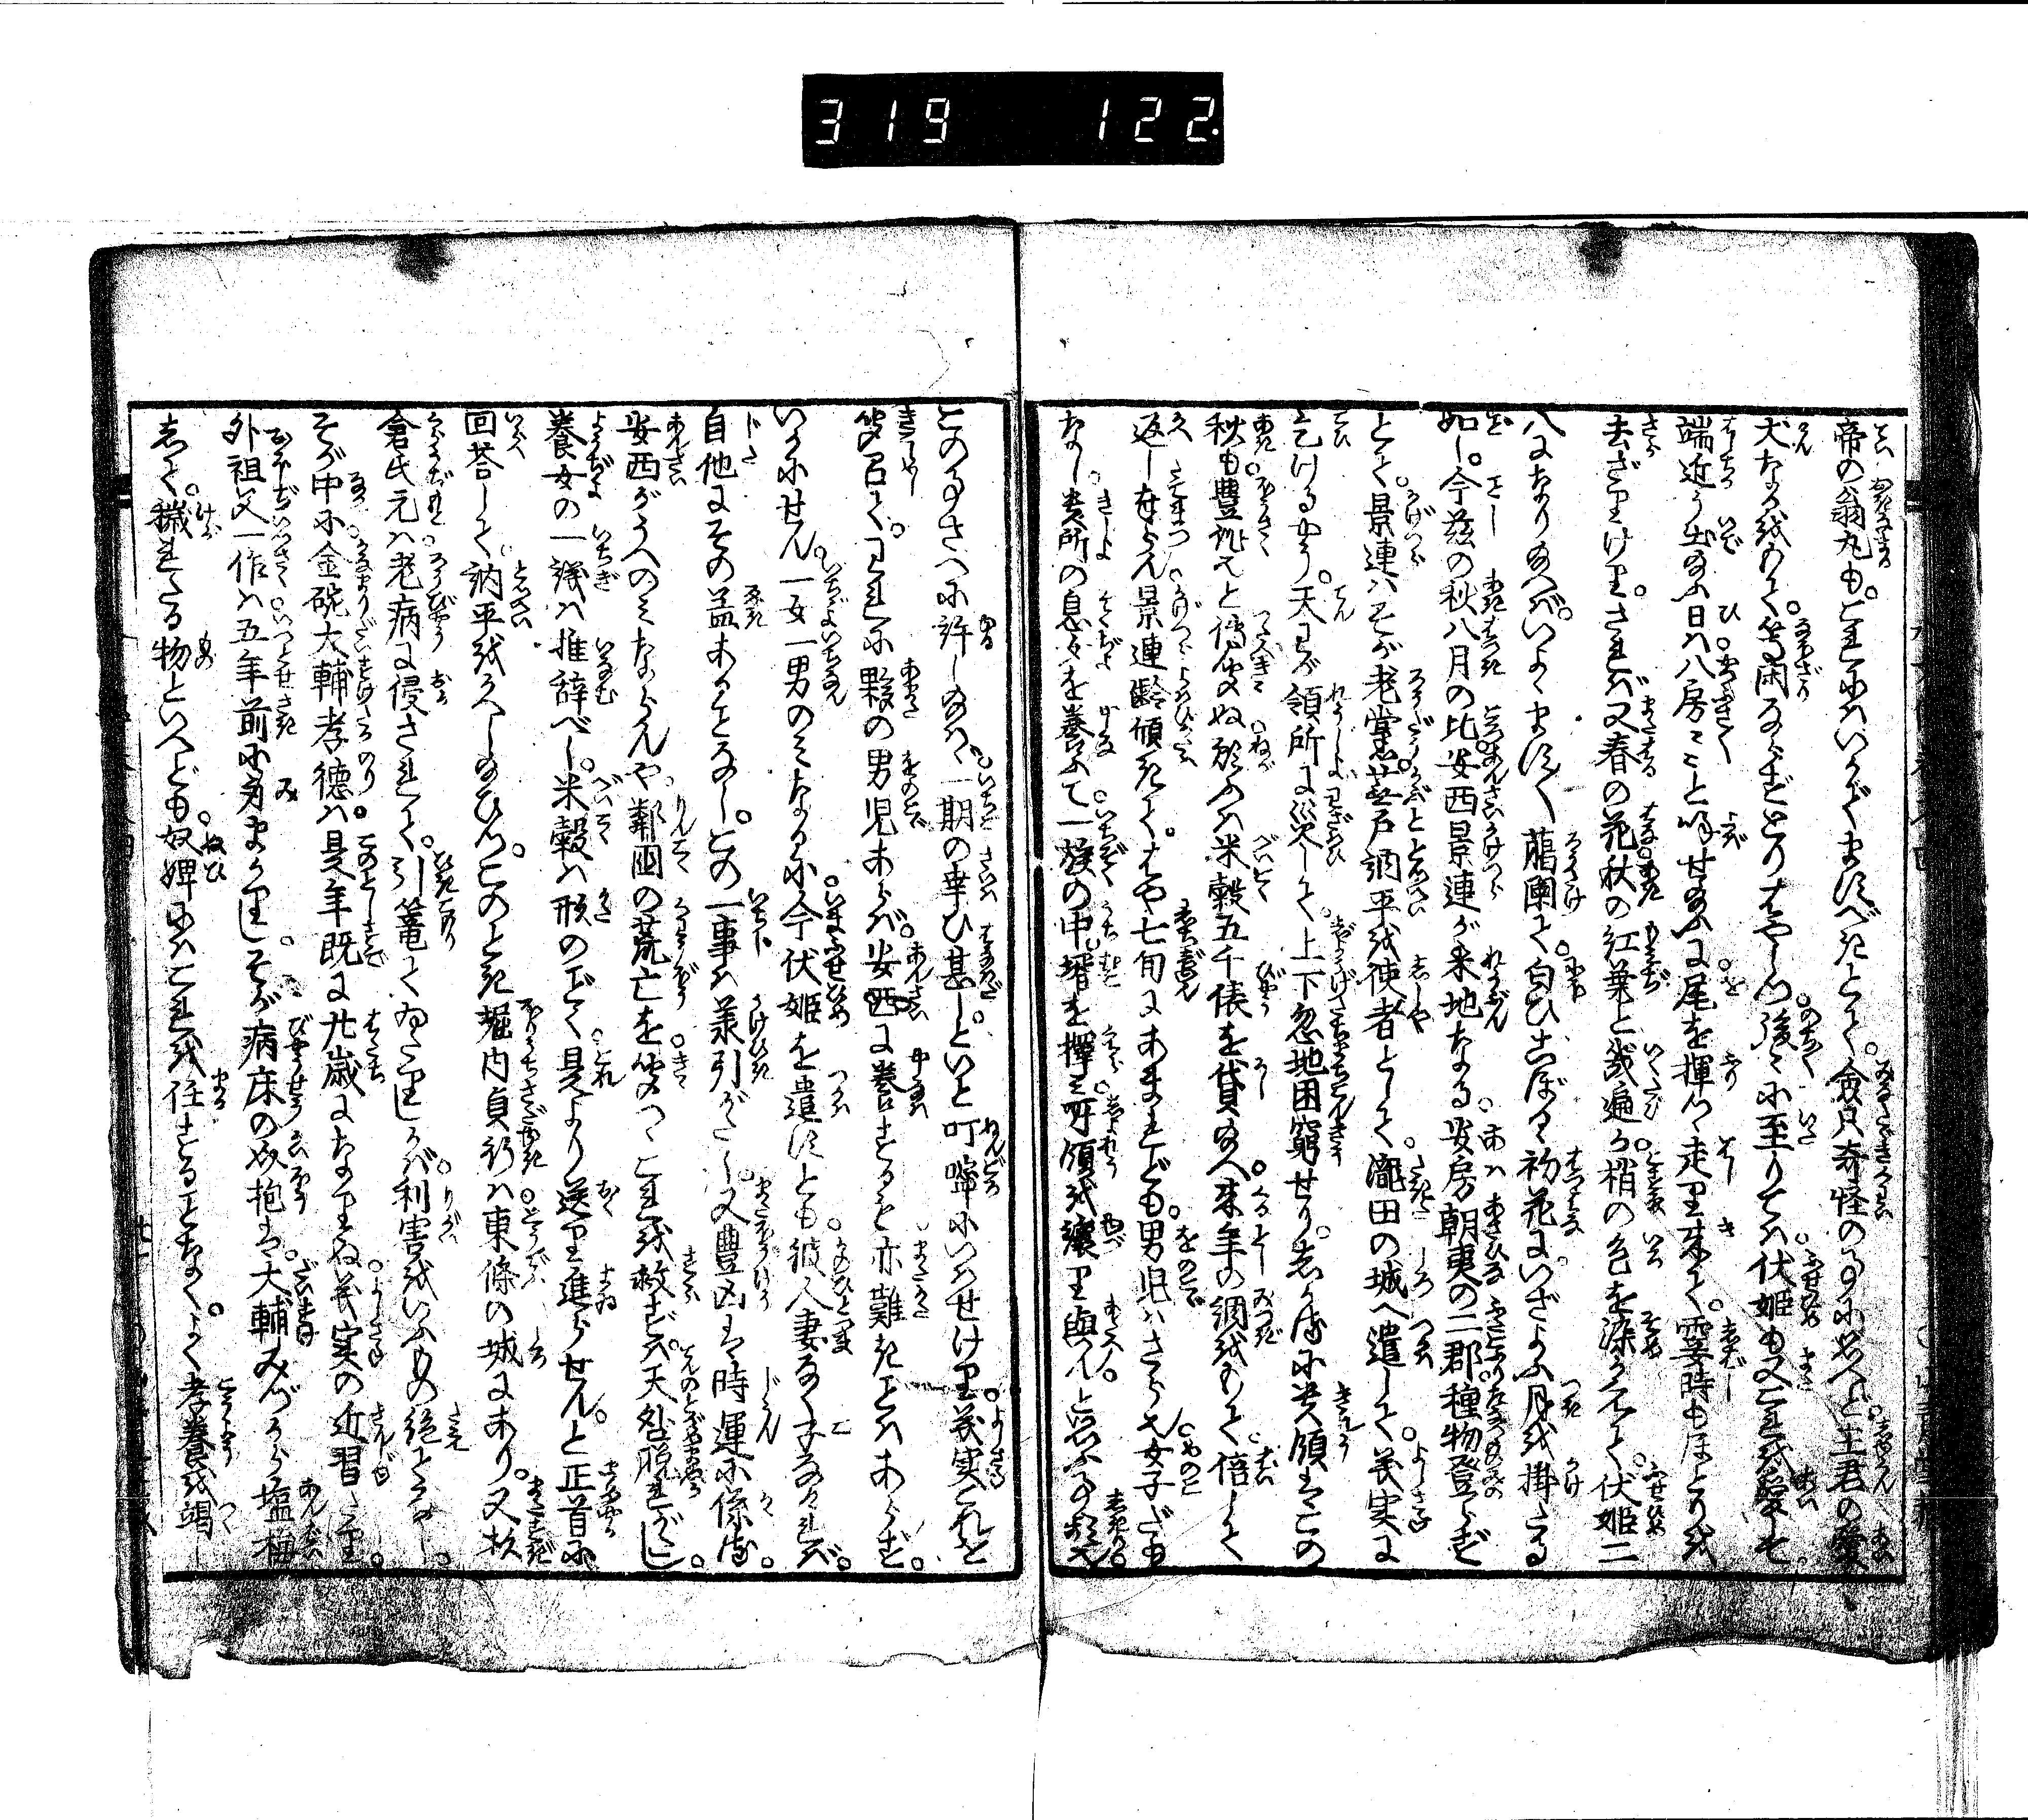 319 122
帝の翁丸も。これにはいかでますべきとて。僉只奇怪の事に思へど主君の愛
犬なるをもて。等閑ならずとりはやしつ。後々に至りては伏姫も又これを愛せ
端近う出給ふ日は八房々々と呼せ給ふに。尾を揮つゝ走り来て。霎時もほとりを
去ざりけり。されば又春の花秋の紅葉と幾遍か。梢の色を染かえて。伏姫二
八になり給へば。いよゝますます﨟闌て。匂ひこぼるゝ初花に。いざよふ月を掛たる
如し。今茲の秋八月の比。安西景連が采地なる。安房朝夷の二郡。種物登らず
とて。景連はその老党。蕪戸訥平を使者として。瀧田の城へ遣して。義実に
乞けるやう。天わが領所に災して。上下忽地困窮せり。しかるに貴領はこの
秋も。豊作と傳聞ぬ。願ふは米穀五千俵を貸給へ。来年の調をもて。倍して
返しまゐらせん。景連齢傾きて。はや七旬にあまれども。男児はさら也女子だも
なし。貴所の息女を養ふて。一族の中。壻を擇み。所領を譲り與んと思ふ事頻也。
この事さへに許し給はゞ。一期の幸ひ甚し。といと叮嚀にいはせけり。義実これを
聞召て。われに夥の男児あらば。安西に養するも亦難きことはあらず。
いかにせん一女一男のみなるに。今伏姫を遣すとも。彼人妻なく子なければ。
自他にその益あることなし。この一事は承引がたし。又豊凶は時運に係る。
安西がうへのみならんや。鄰国の荒亡を聞つゝこれを救ずは。天咎脱れがたし。
養女の一議は推辞べし。米穀は形のごとく。是より送り進らせん。と正首に
回答して。訥平をかへし給ひつ。このとき堀内貞行は。東條の城にあり。又杉
倉氏元は。老病に侵されて。引篭てゐたりしかば。利害をいふもの絶てなし。
その中に金碗大輔孝徳は。是年既に廿歳になりぬ。義実の近習たり。
外祖父一作は。五年前に身まかりし。その病床の好抱は。大輔みづから塩梅
して。穢れたる物といへども。奴婢にはこれを任することなく。よく孝養を竭し